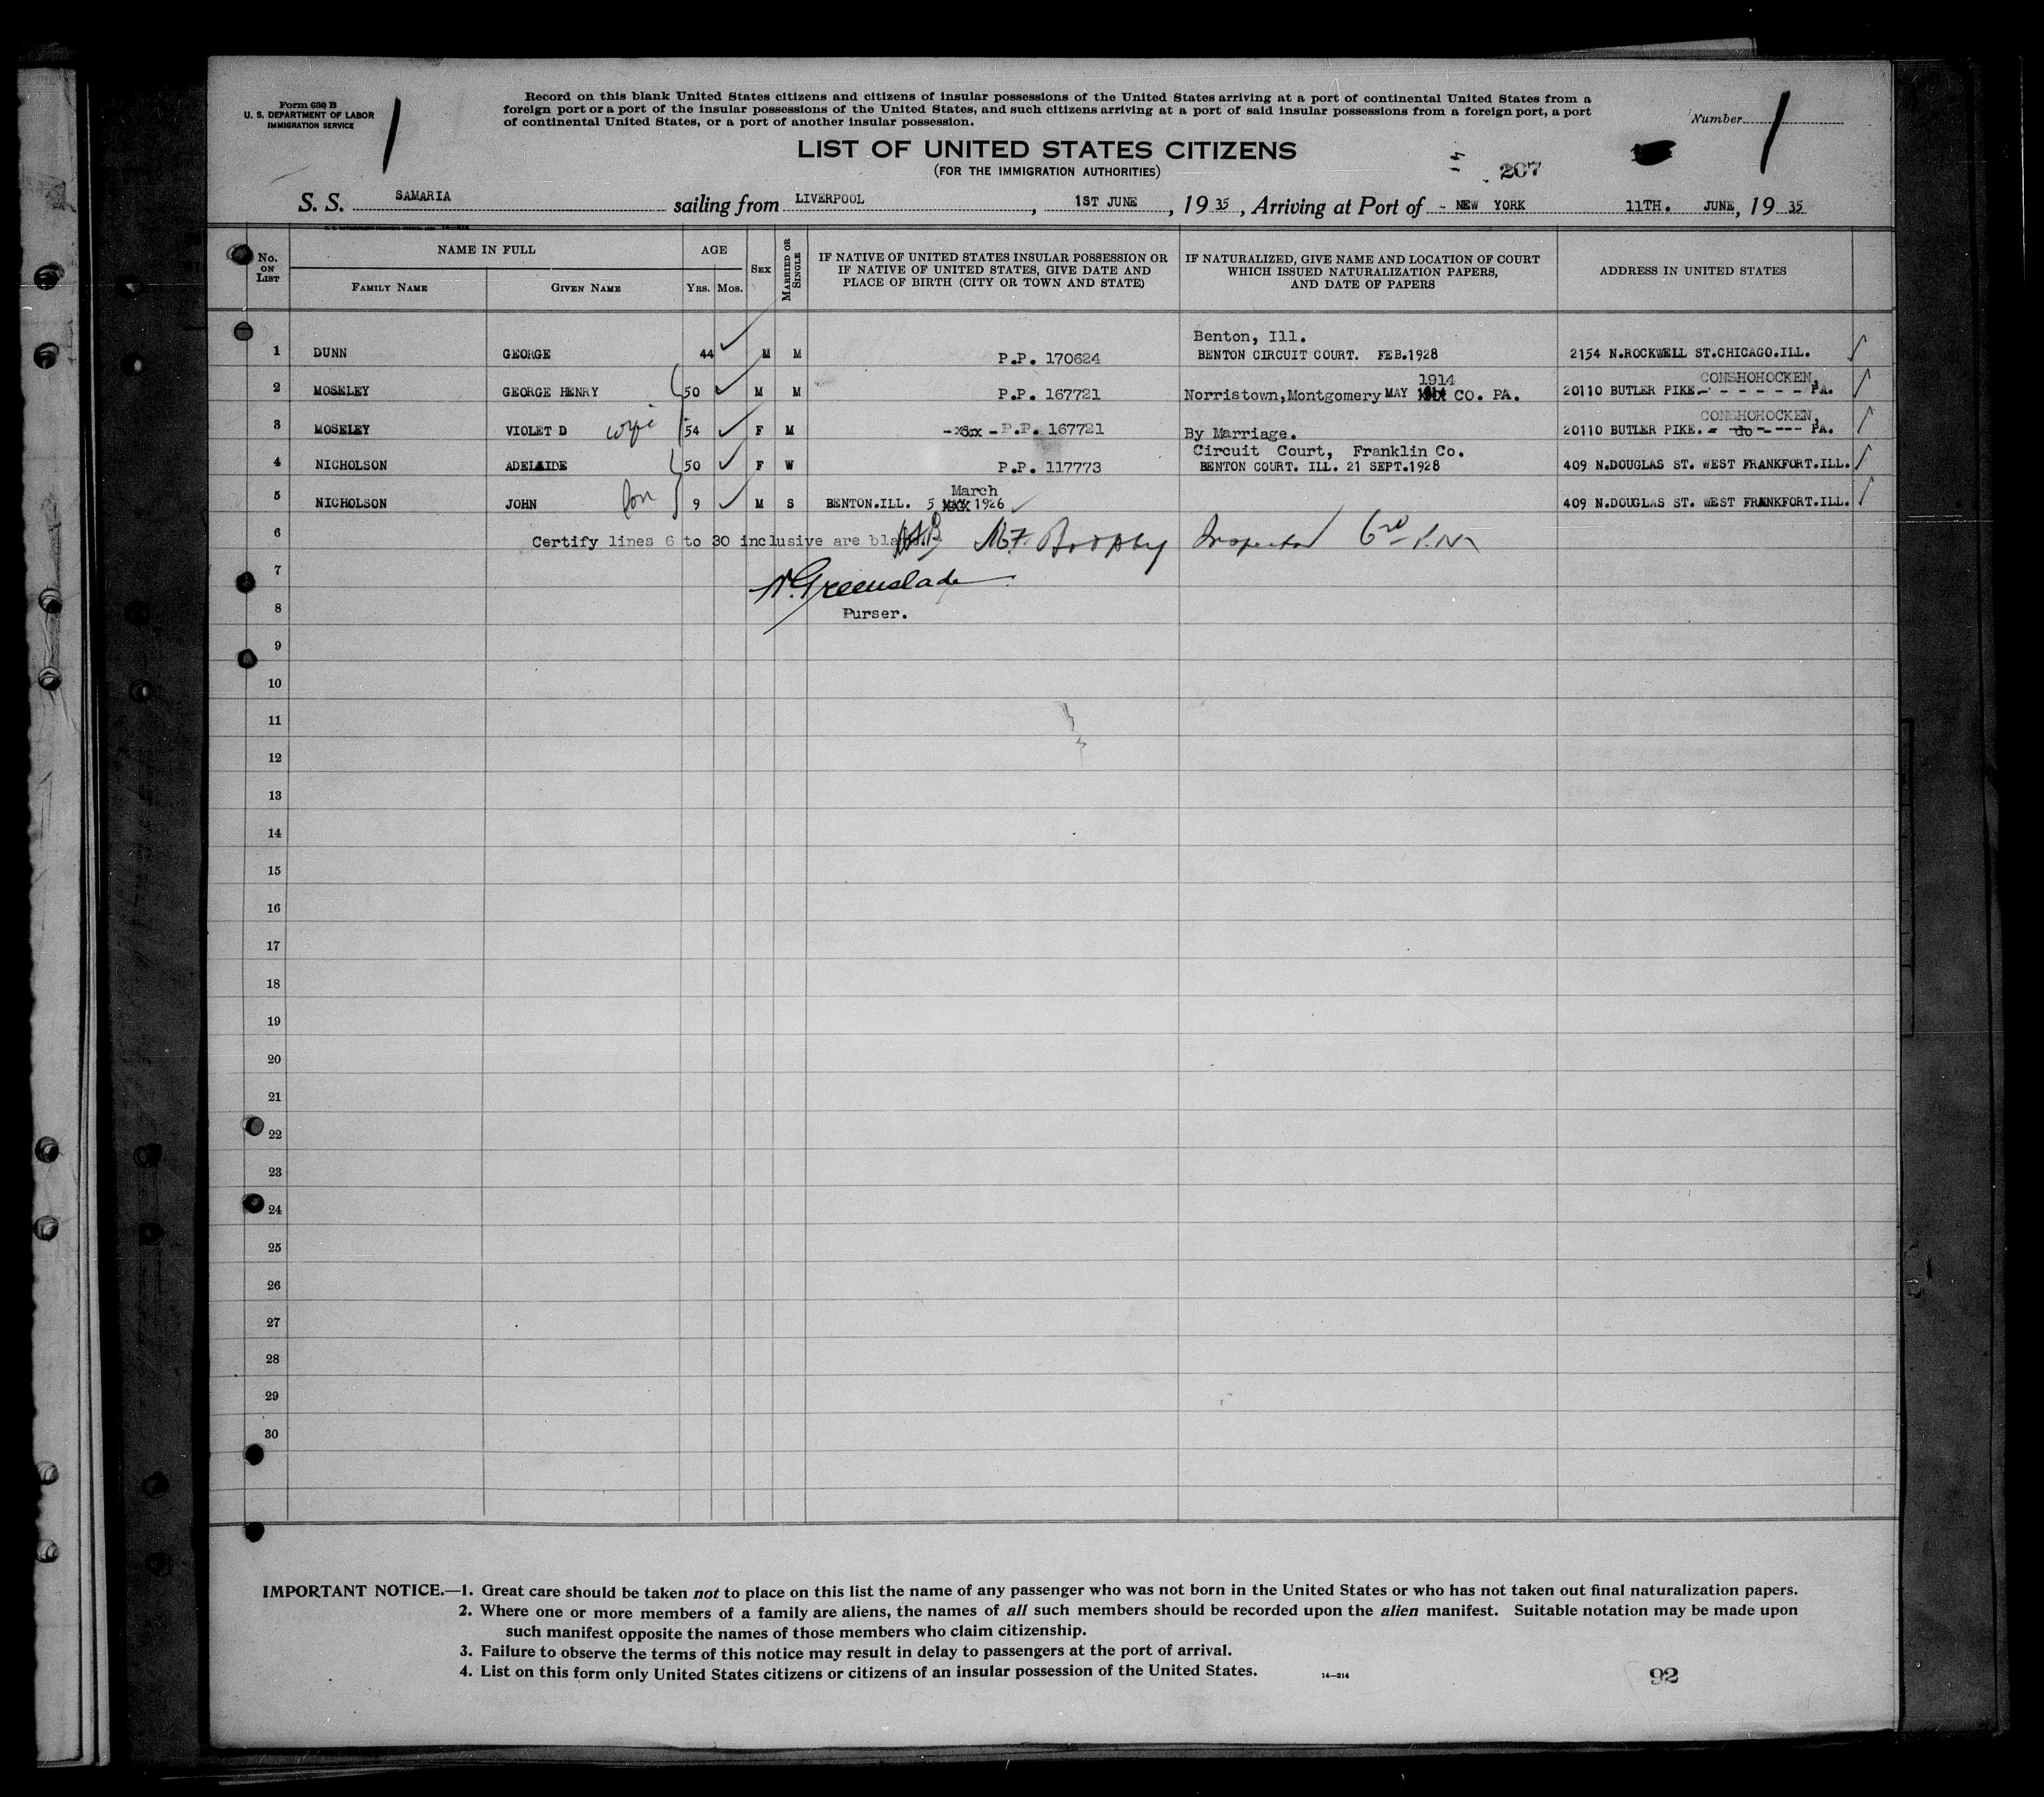 Form 630 B
U. S. DEPARTMENT OF LABOR
IMMIGRATION SERVICE
1
Record on this blank United States citizens and citizens of insular possessions of the United States arriving at a port of continental United States from a
foreign port or a port of the insular possessions of the United States, and such citizens arriving at a port of said insular possessions from a foreign port, a port
of continental United States, or a port of another insular possession.
Number 1
LIST OF UNITED STATES CITIZENS
(FOR THE IMMIGRATION AUTHORITIES)
207
S. S. SAMARIA sailing from LIVERPOOL, 1ST JUNE, 19 35, Arriving at Port of NEW YORK 11TH. JUNE, 19 35
No. ON LIST
NAME IN FULL
FAMILY NAME GIVEN NAME
AGE
YRS. MOS.
SEX
MARRIED OR SINGLE
IF NATIVE OF UNITED STATES INSULAR POSSESSION OR
IF NATIVE OF UNITED STATES, GIVE DATE AND
PLACE OF BIRTH (CITY OR TOWN AND STATE)
IF NATURALIZED, GIVE NAME AND LOCATION OF COURT
WHICH ISSUED NATURALIZATION PAPERS,
AND DATE OF PAPERS
ADDRESS IN UNITED STATES
Benton, Ill.
1 DUNN GEORGE 44 M M P.P. 170624 BENTON CIRCUIT COURT. FEB.1928 2154 N.ROCKWELL ST.CHICAGO.ILL.
1914 CONSHOHOCKEN,
2 MOSELEY GEORGE HENRY 50 M M P.P. 167721 Norristown,Montgomery MAY CO. PA. 20110 BUTLER PIKE.- - - - - - - PA.
CONSHOHOCKEN,
3 MOSELEY VIOLET D wife 54 F M P.P. 167721 By Marriage. 20110 BUTLER PIKE. - do - --- PA.
Circuit Court, Franklin Co.
4 NICHOLSON ADELAIDE 50 F W P.P. 117773 BENTON COURT. ILL. 21 SEPT.1928 409 N.DOUGLAS ST. WEST FRANKFORT.ILL.
March
5 NICHOLSON JOHN son 9 M S BENTON.ILL. 5 MAY 1926 409 N.DOUGLAS ST. WEST FRANKFORT.ILL.
6 Certify lines 6 to 30 inclusive are blank. Brophy Inspector
7 Greenslade
8 Purser.
9
10
11
12
13
14
15
16
17
18
19
20
21
22
23
24
25
26
27
28
29
30
IMPORTANT NOTICE.—1. Great care should be taken not to place on this list the name of any passenger who was not born in the United States or who has not taken out final naturalization papers.
2. Where one or more members of a family are aliens, the names of all such members should be recorded upon the alien manifest. Suitable notation may be made upon
such manifest opposite the names of those members who claim citizenship.
3. Failure to observe the terms of this notice may result in delay to passengers at the port of arrival.
4. List on this form only United States citizens or citizens of an insular possession of the United States.
14—214
92